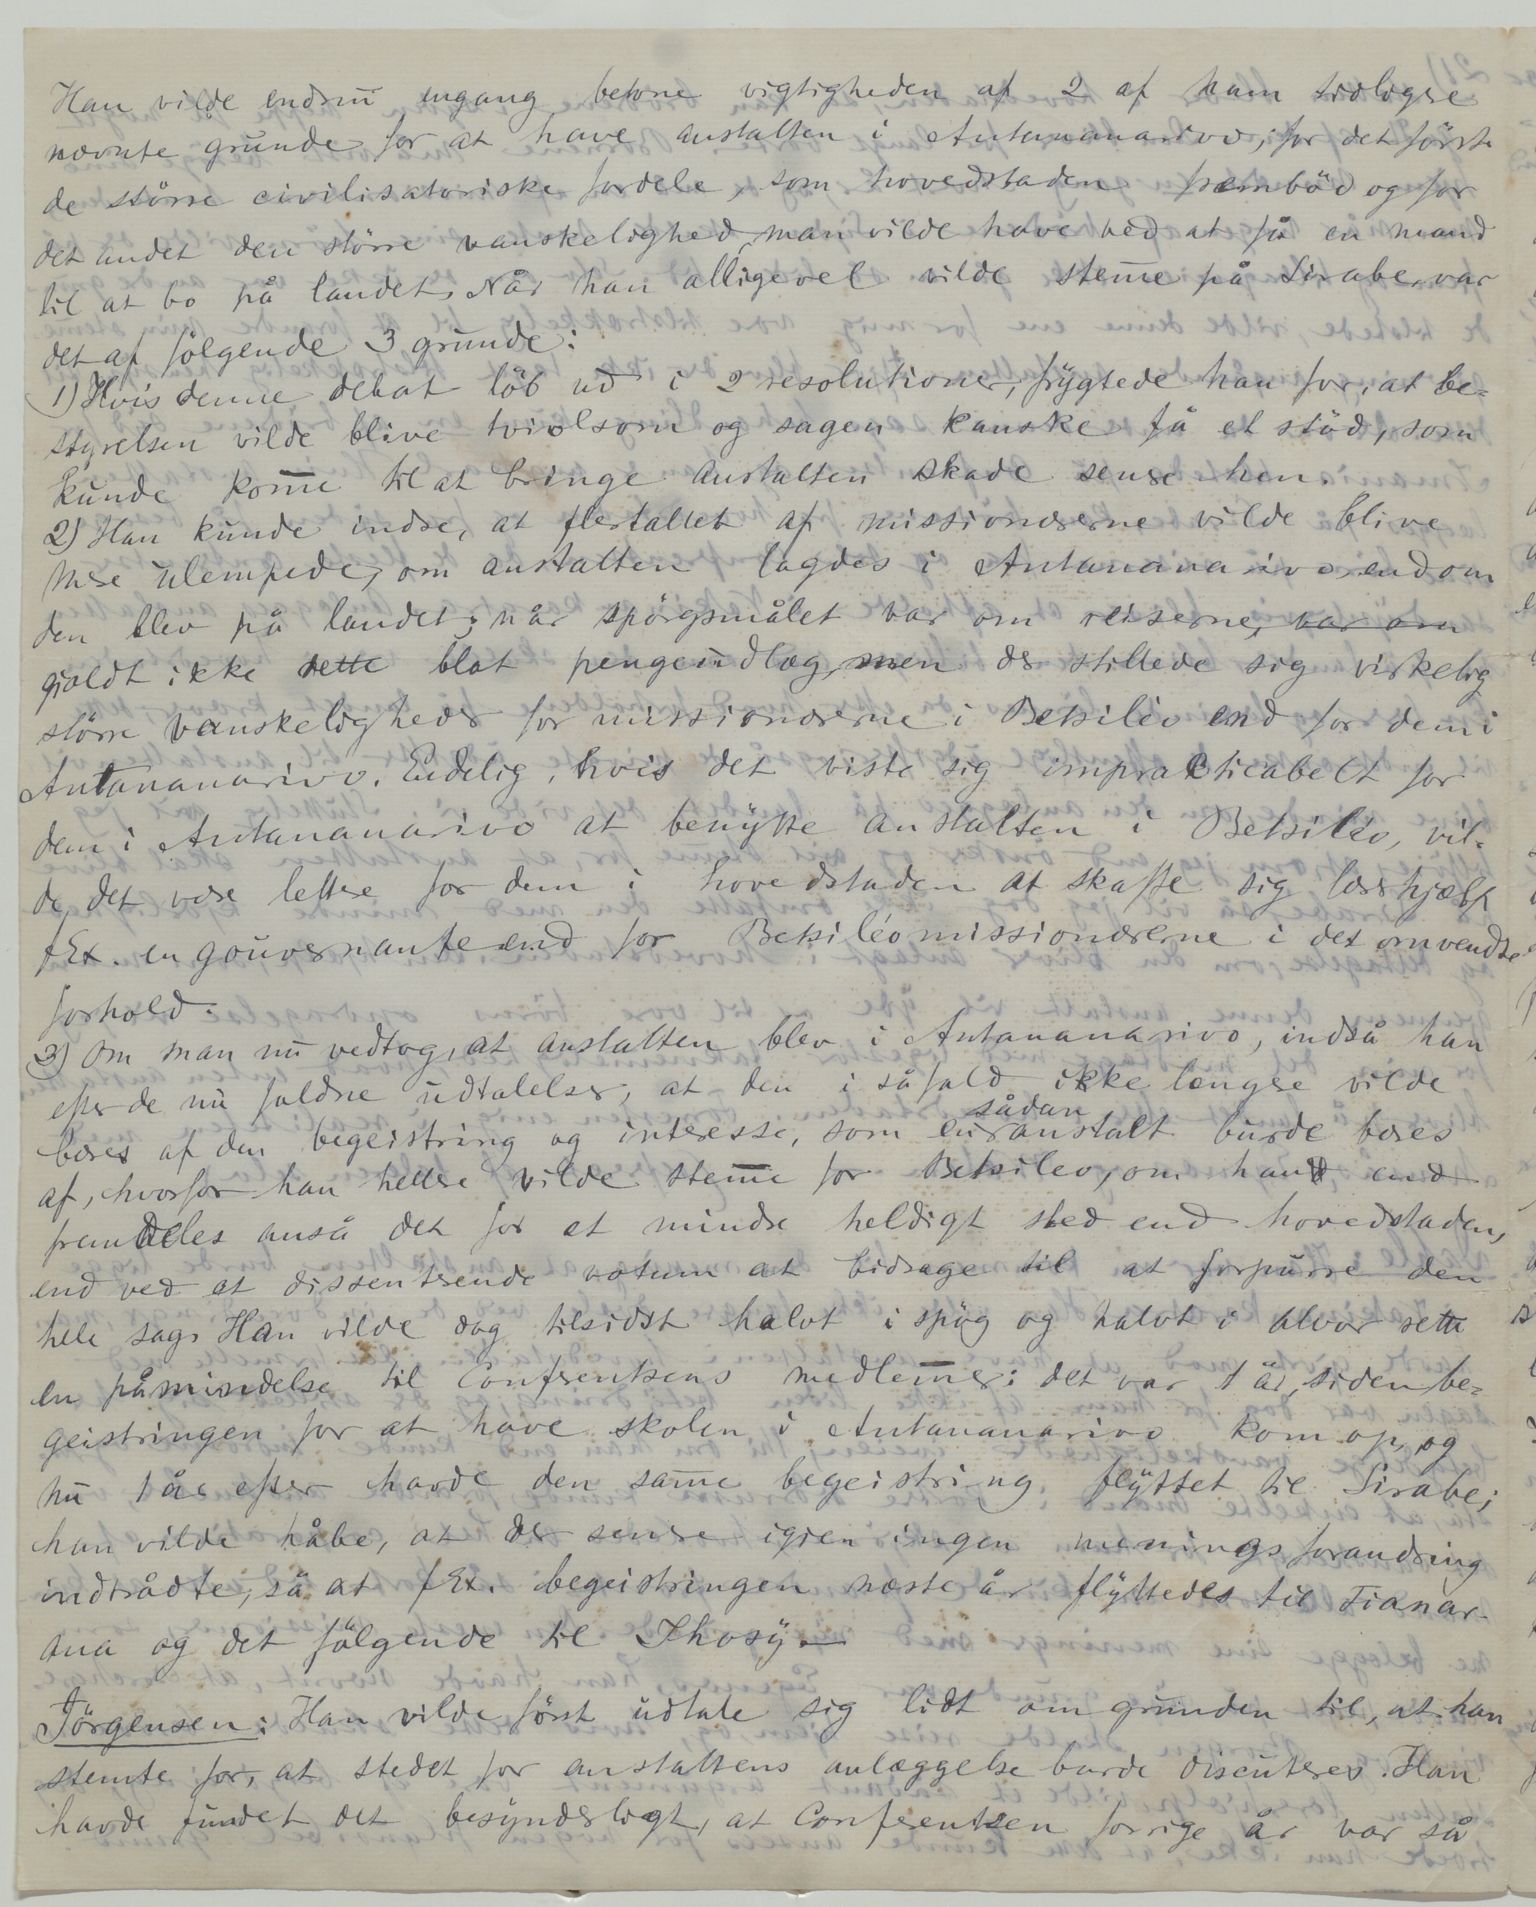 Han vilde endnu engang betone vigtigheden af 2 af ham tidligere
nævnte grunde for at have anstalten i Antananarivo, for det förste
de större civilisatoriske fordele, som hovedstaden frembød og for
det andet den större vanskelighed, man vilde have ved at få en mand
til at bo på landet. Når han alligevel vilde stem̅e på Sirabe, var
det af fölgende 3 grunde:
1) Hvis denne debat löb ud i 2 resolutioner, frygtede han for, at be=
styrelsen vilde blive tvivlsom og sagen kanske få et stöd, som
kunde kom̅e til at bringe anstalten skade senere hen.
2) Han kunde indse, at flertallet af missionærerne vilde blive
mere ulempede, om anstalten lagdes i Antananarivo, end om
den blev på landet; når spörgsmålet var om reiserne, var om
gjaldt ikke dette blot pengeudlæg, men der stillede sig virkelig
större vanskeligheder for missionærerne i Betsileo end for dem i
Antananarivo. Endelig, hvis det viste sig impracticabelt for
dem i Antananarivo at benytte anstalten i Betsileo, vil-
de det være lettere for dem i hovedstaden at skaffe sig lærerhjælp
f.Ex. en gouvernante end for Betsiléomissionærerne i det omvendte
forhold.
3) Om man nu vedtog, at anstalten blev i Antananarivo, indså han
efter de nu faldne udtalelser, at den i såfald ikke længere vilde
bæres af den begeistring og interesse, som en sådan anstalt burde bæres
af, hvorfor han hellere vilde stem̅e for Betsileo, om han end
fremdeles anså det for et mindre heldigt sted end hovedstaden,
end ved et dissenterende votum at bidrage til at forpurre den
hele sag. Han vilde dog tilsidst halvt i spøg og halvt i alvor rette
en påmindelse til Conferentsens medlem̅er: det var 1 år, siden be=
geistringen for at have skolen i Antananarivo kom op, og
nu 1 år efter havde den sam̅e begeistring flyttet til Sirabe;
han vilde håbe, at der senere igjen ingen meningsforandring
indtrådte, så at f.Ex. begeistringen næste år flyttedes til Fianar-
ana og det fölgende til Ihosy.—
Jörgensen: Han vilde först udtale sig lidt om grunden til, at han
stemte for, at stedet for anstaltens anlæggelse burde discuteres. Han
havde fundet det besynderligt, at Conferentsen forrige år var så